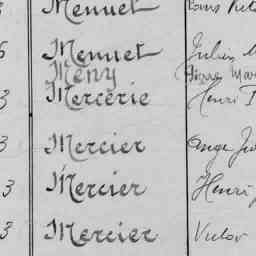 Menuet
6 Menuet Julien M
Meny Pierre Mar
3 Mercerie Henri
3 Mercier Ange Ju
3 Mercier Henri
3 Mercier Victor